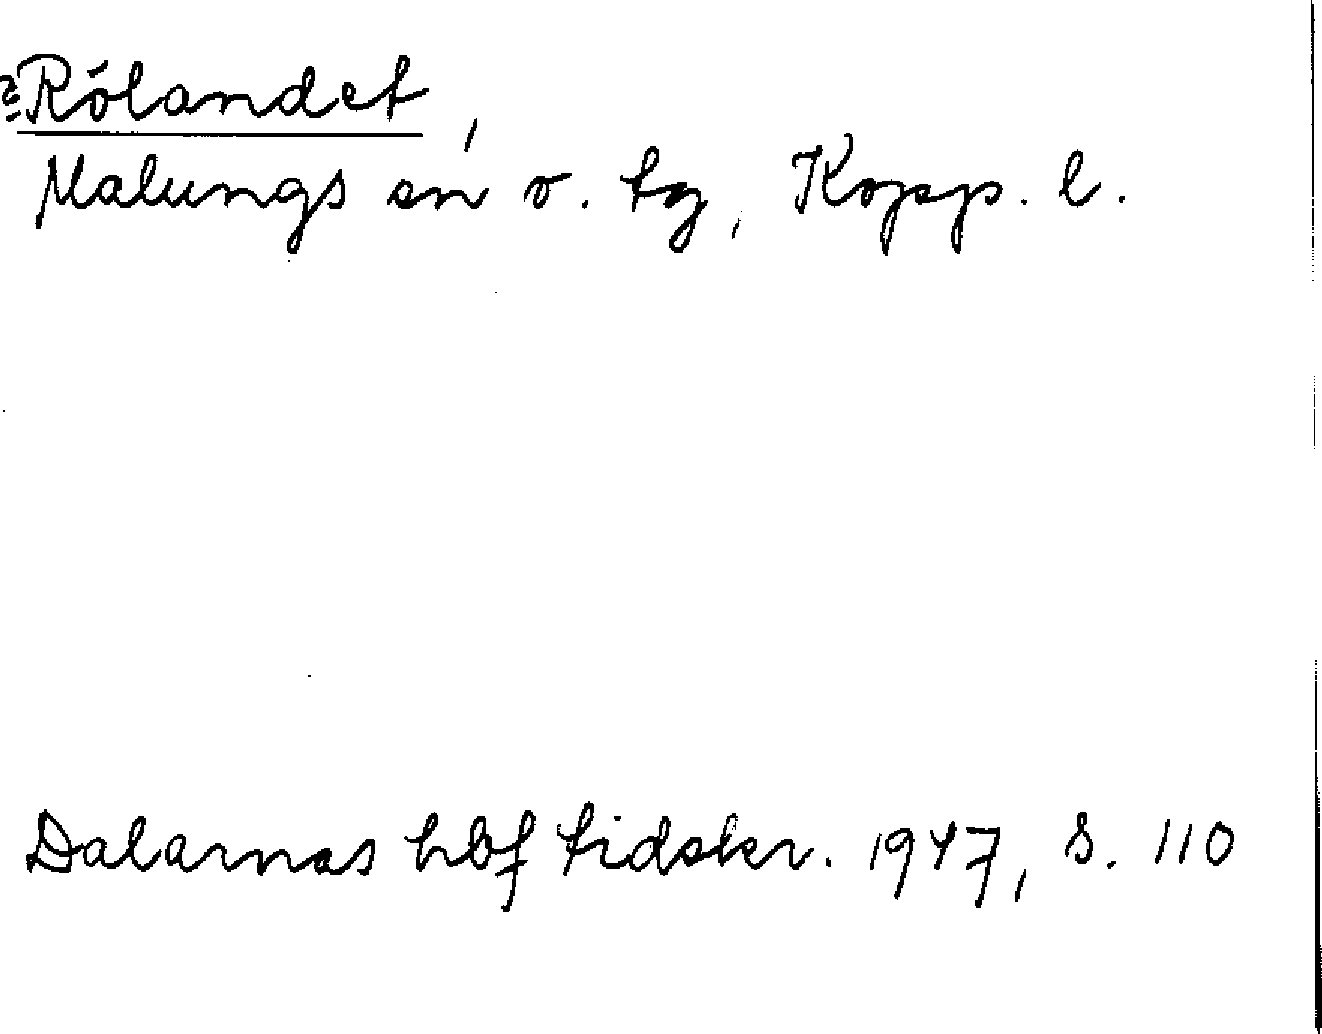 Rólandet,
Malungs sn o. tg, Kopp. l.
Dalarnas hbf tidskr. 1947, s. 110